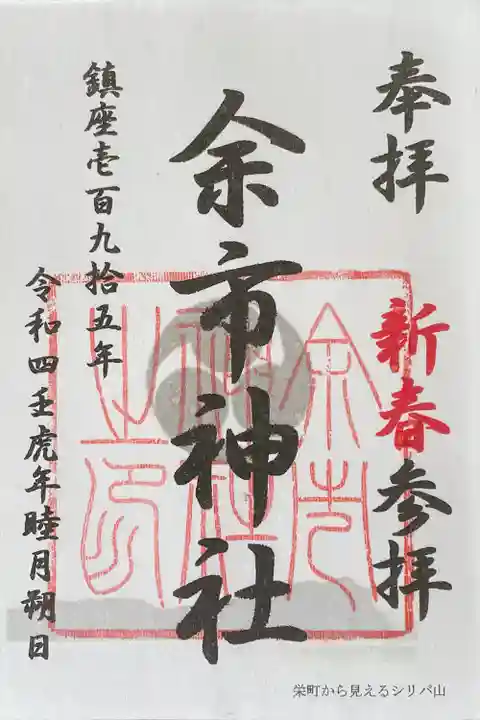 奉拝
新春参拝
余市神社
余市
神社
之印
鎮座壱百九拾五年
令和四壬虎年睦月朔日
栄町から見えるシリパ山